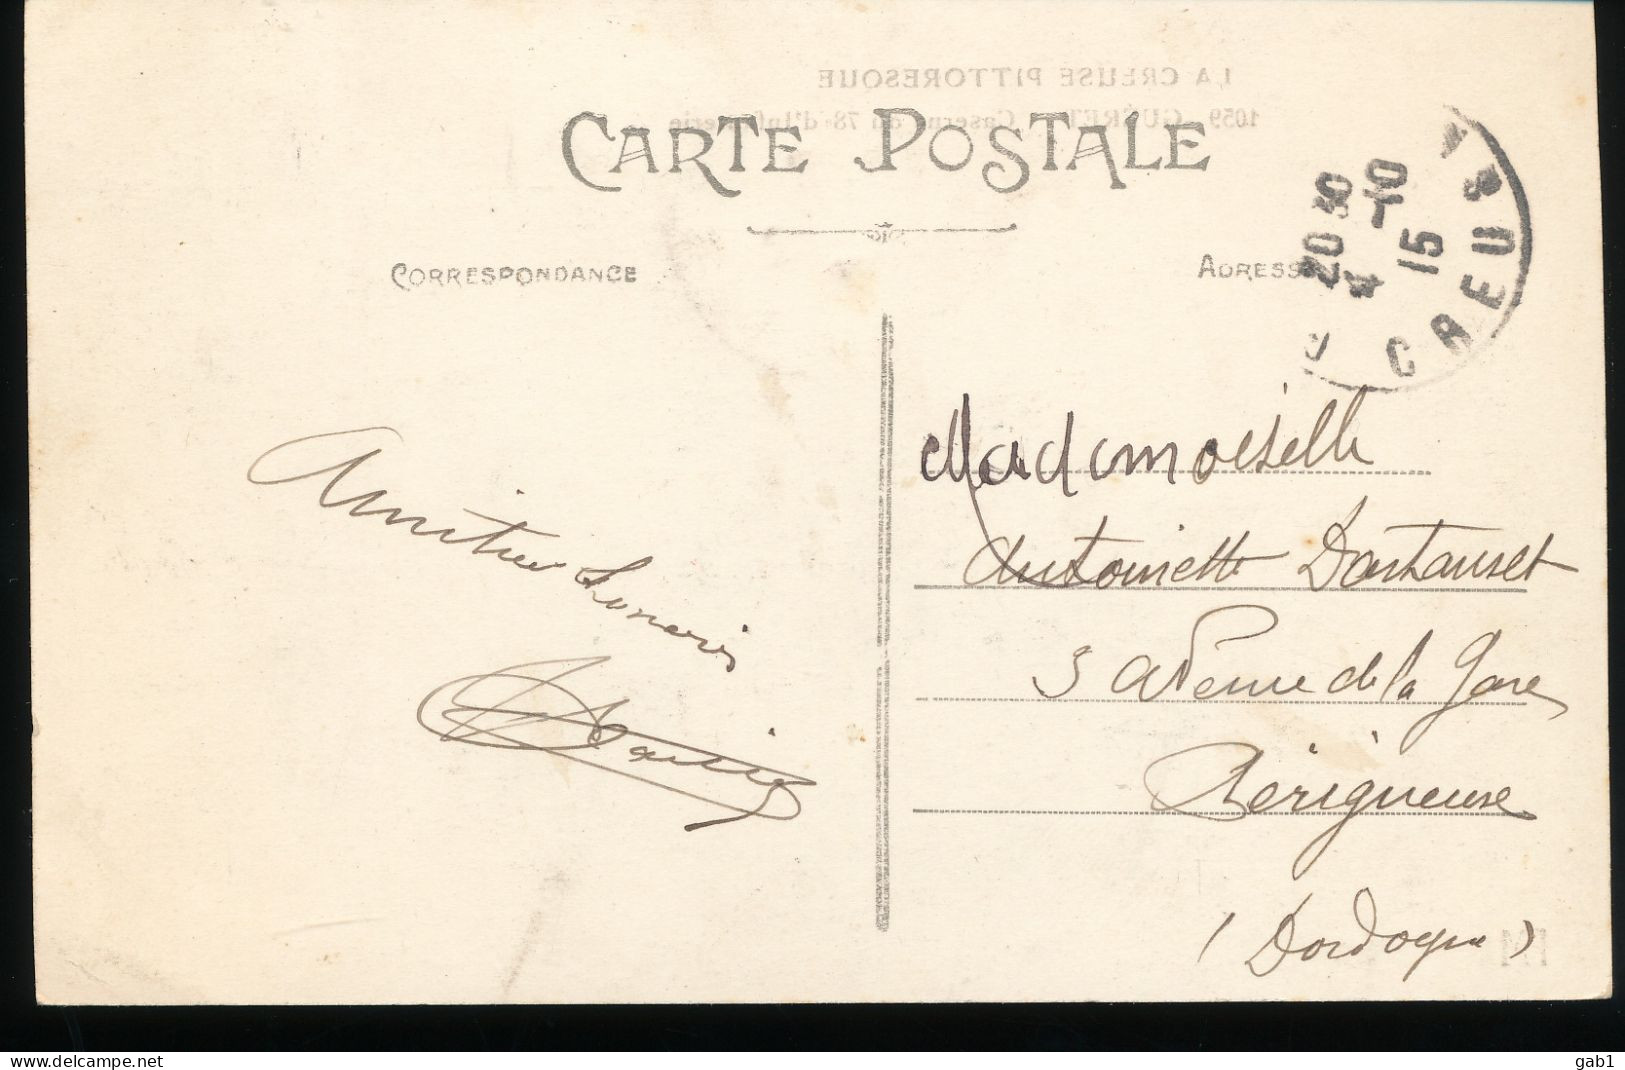 LA CREUSE PITTORESQUE
1059. GUÉRET - Caserne du 78e d'Infanterie
CARTE POSTALE
CORRESPONDANCE
ADRESSE
20 50
15
CREUSE
Mademoiselle
Antoinette
3 avenue de la Gare
Périgueuse
(Dordogne)
Amitié
www.delcampe.net
gab1